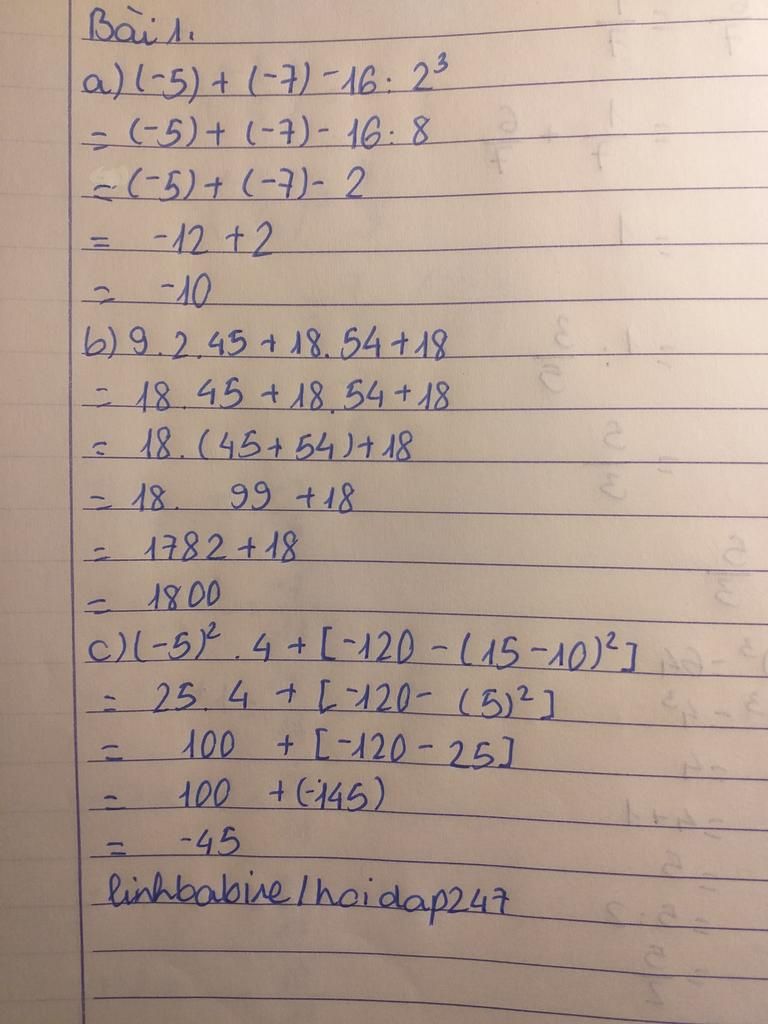 Bài 1.
a) (-5) + (-7) - 16 : 2³
= (-5) + (-7) - 16 : 8
= (-5) + (-7) - 2
= -12 + 2
= -10
b) 9 . 2 . 45 + 18 . 54 + 18
= 18 . 45 + 18 . 54 + 18
= 18 . (45 + 54) + 18
= 18 . 99 + 18
= 1782 + 18
= 1800
c) (-5)² . 4 + [-120 - (15 - 10)²]
= 25 . 4 + [-120 - (5)²]
= 100 + [-120 - 25]
= 100 + (-145)
= -45
linhbabire/hoidap247